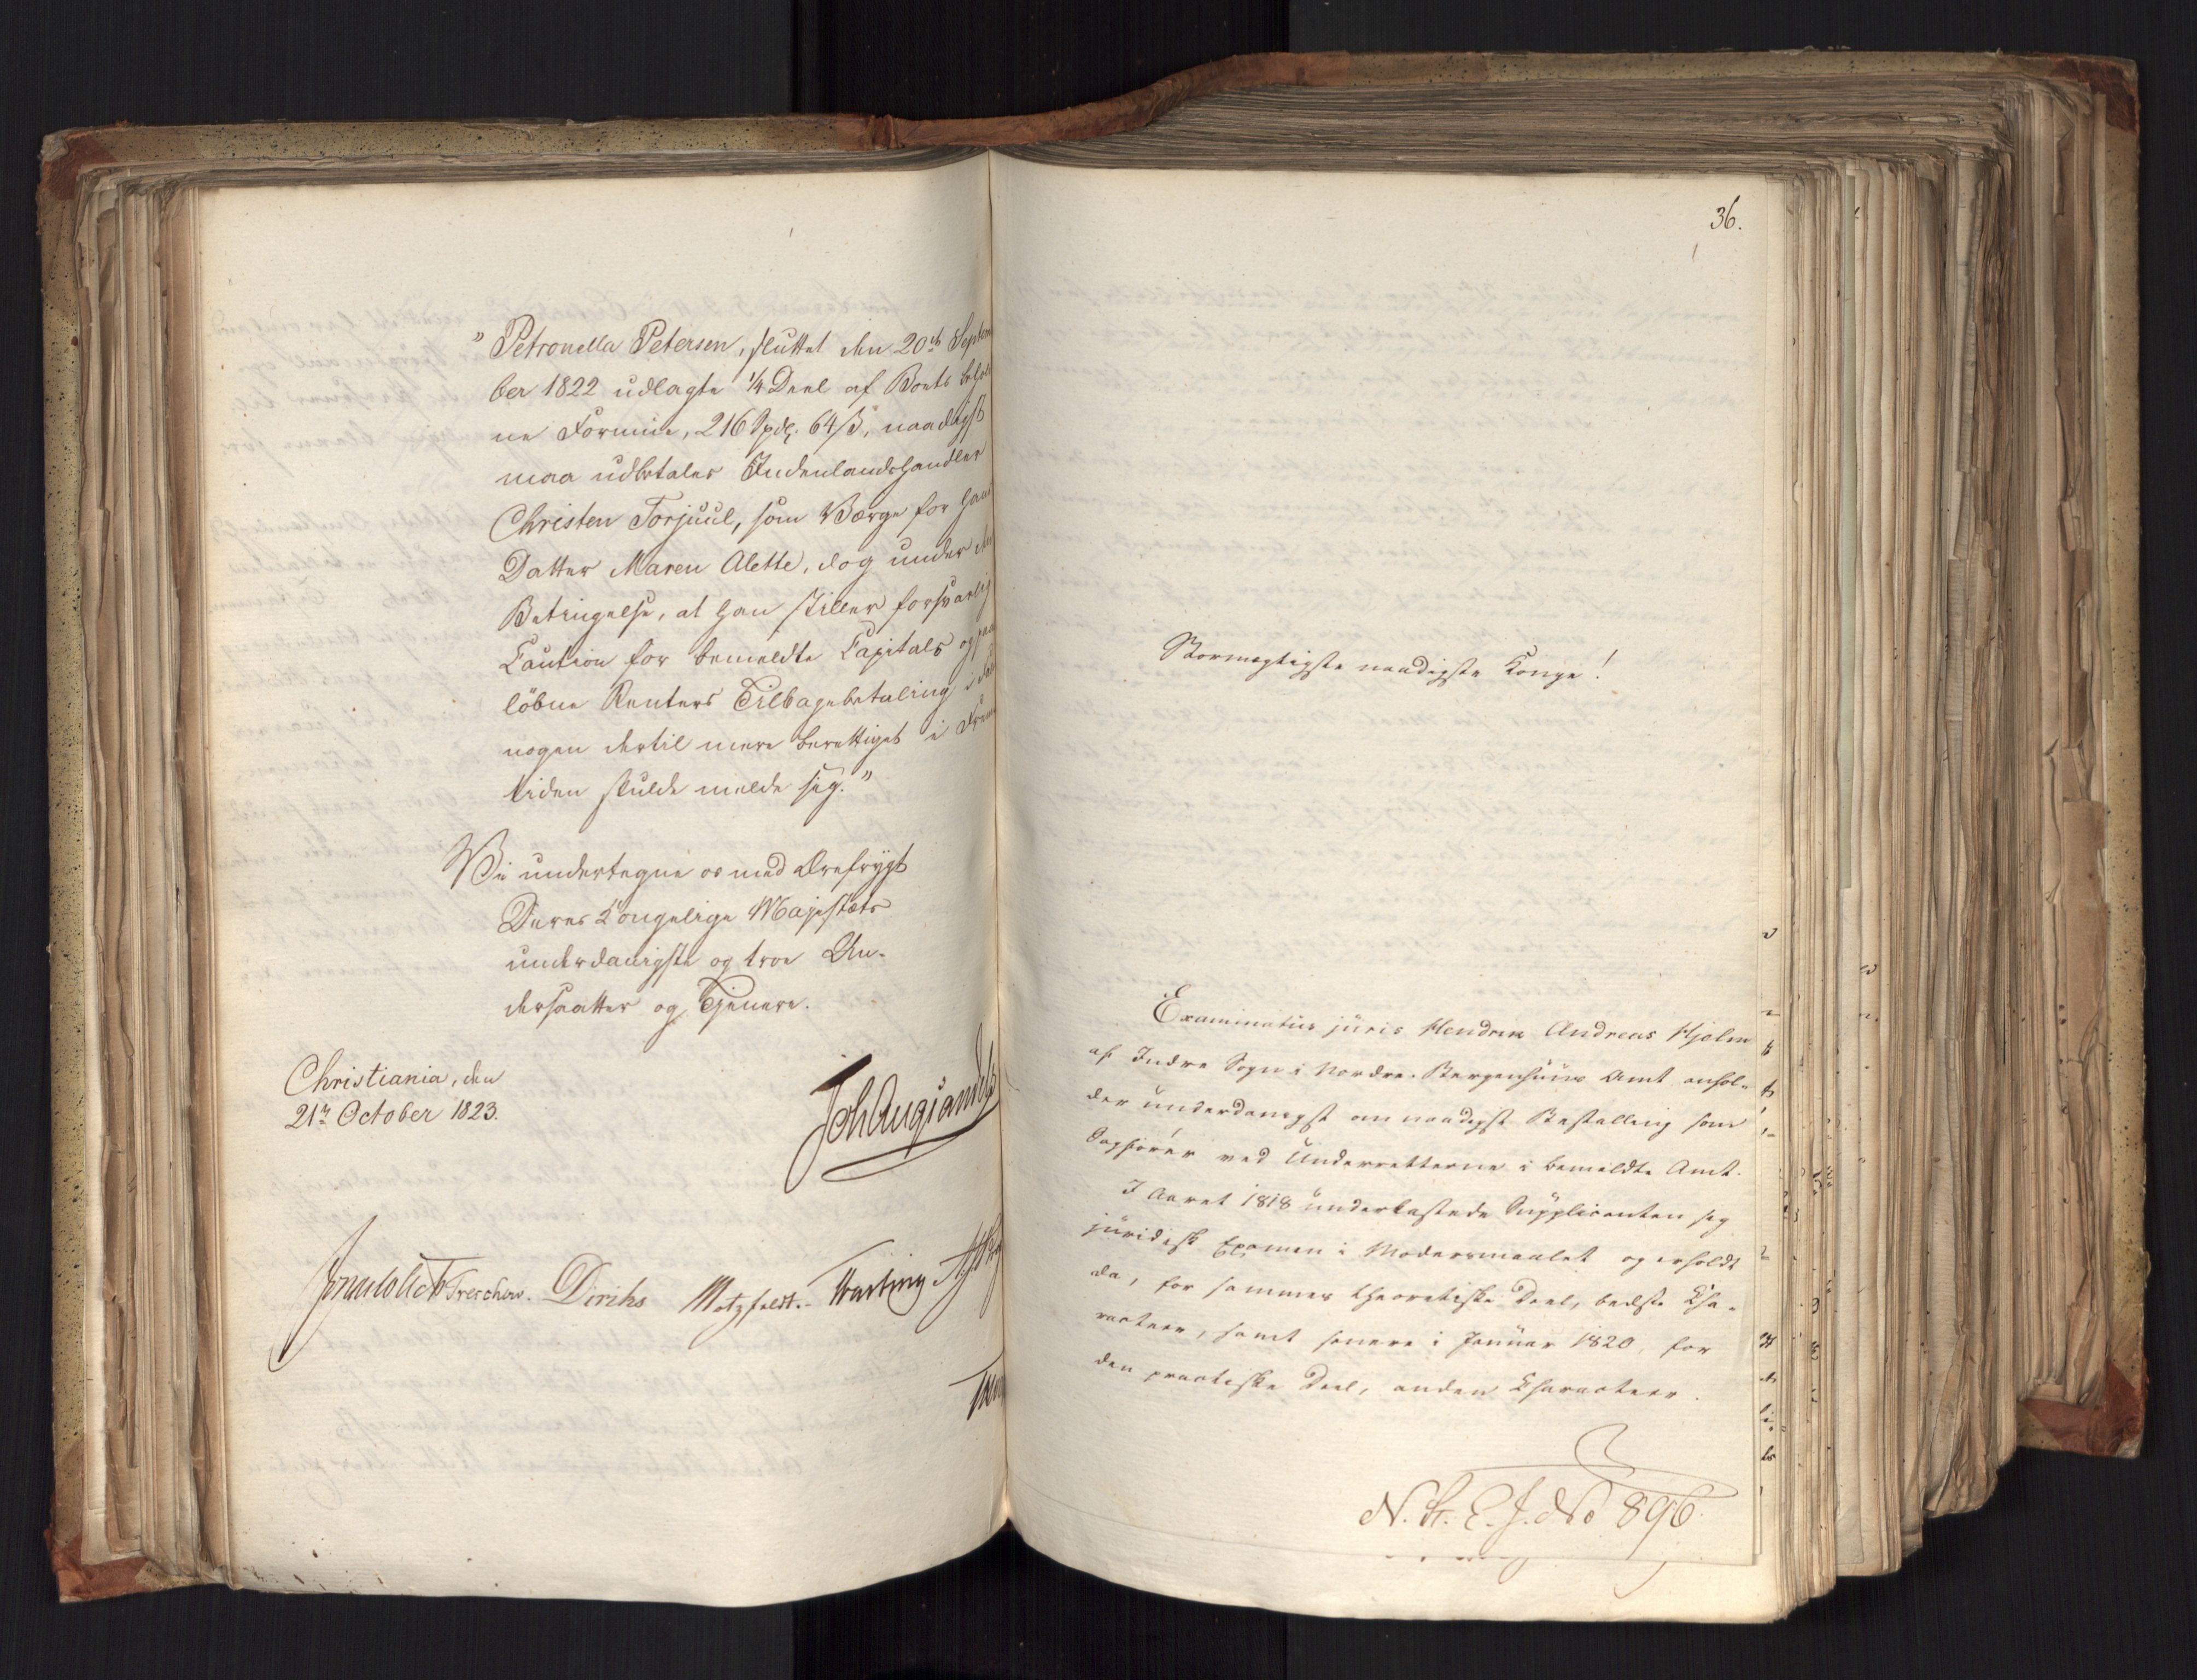 "Petronella Petersen, sluttet den 20de Septem
ber 1822 udlagte 1/4 Deel af Boets behold
ne Formue, 216 Spdlr. 64 ß, naadigst
maa udbetales Indenlandshandler
Christen Torjuul, som Værge for hans
Datter Maren Alette, dog under den
Betingelse, at han stiller forsvarlig
Caution for bemeldte Capitals og paa
løbne Renters Tilbagebetaling, i
nogen dertil mere berettiget i Frem
tiden skulde melde sig."
Vi undertegne os med Ærefrygt
Deres Kongelige Majestæts
underdanigste og troe Un-
dersaatter og Tjenere.
Christiania, den
21de October 1823.
Treschow. Diriks Motzfeldt.
36.
Stormægtigste naadigste Konge!
Examinatus juris Hendrik Andreas Hjelm
af Indre Sogn i Nordre-Bergenhuus Amt anhol-
der underdanigst om naadigst Bestalling som
Sagfører ved Underretterne i bemeldte Amt.
I Aaret 1818 underkastede Supplicanten sig
juridisk Examen i Modersmaalet og erholdt
da, for sammes theoretiske Deel, bedste Cha-
racteer, samt senere i Januar 1820, for
den practiske Deel, anden Characteer.
N. St. E. J. No 896.